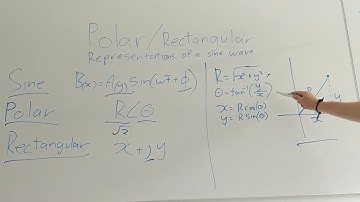 Polar/Rectangular
Representations of a sine wave
Sine B(x)=A(y)Sin(wT+ϕ)
Polar R∠θ
√2
Rectangular x+jy
R=√x²+y²
θ=tan⁻¹(y/x)
x=Rcos(θ)
y=Rsin(θ)
R
y
x